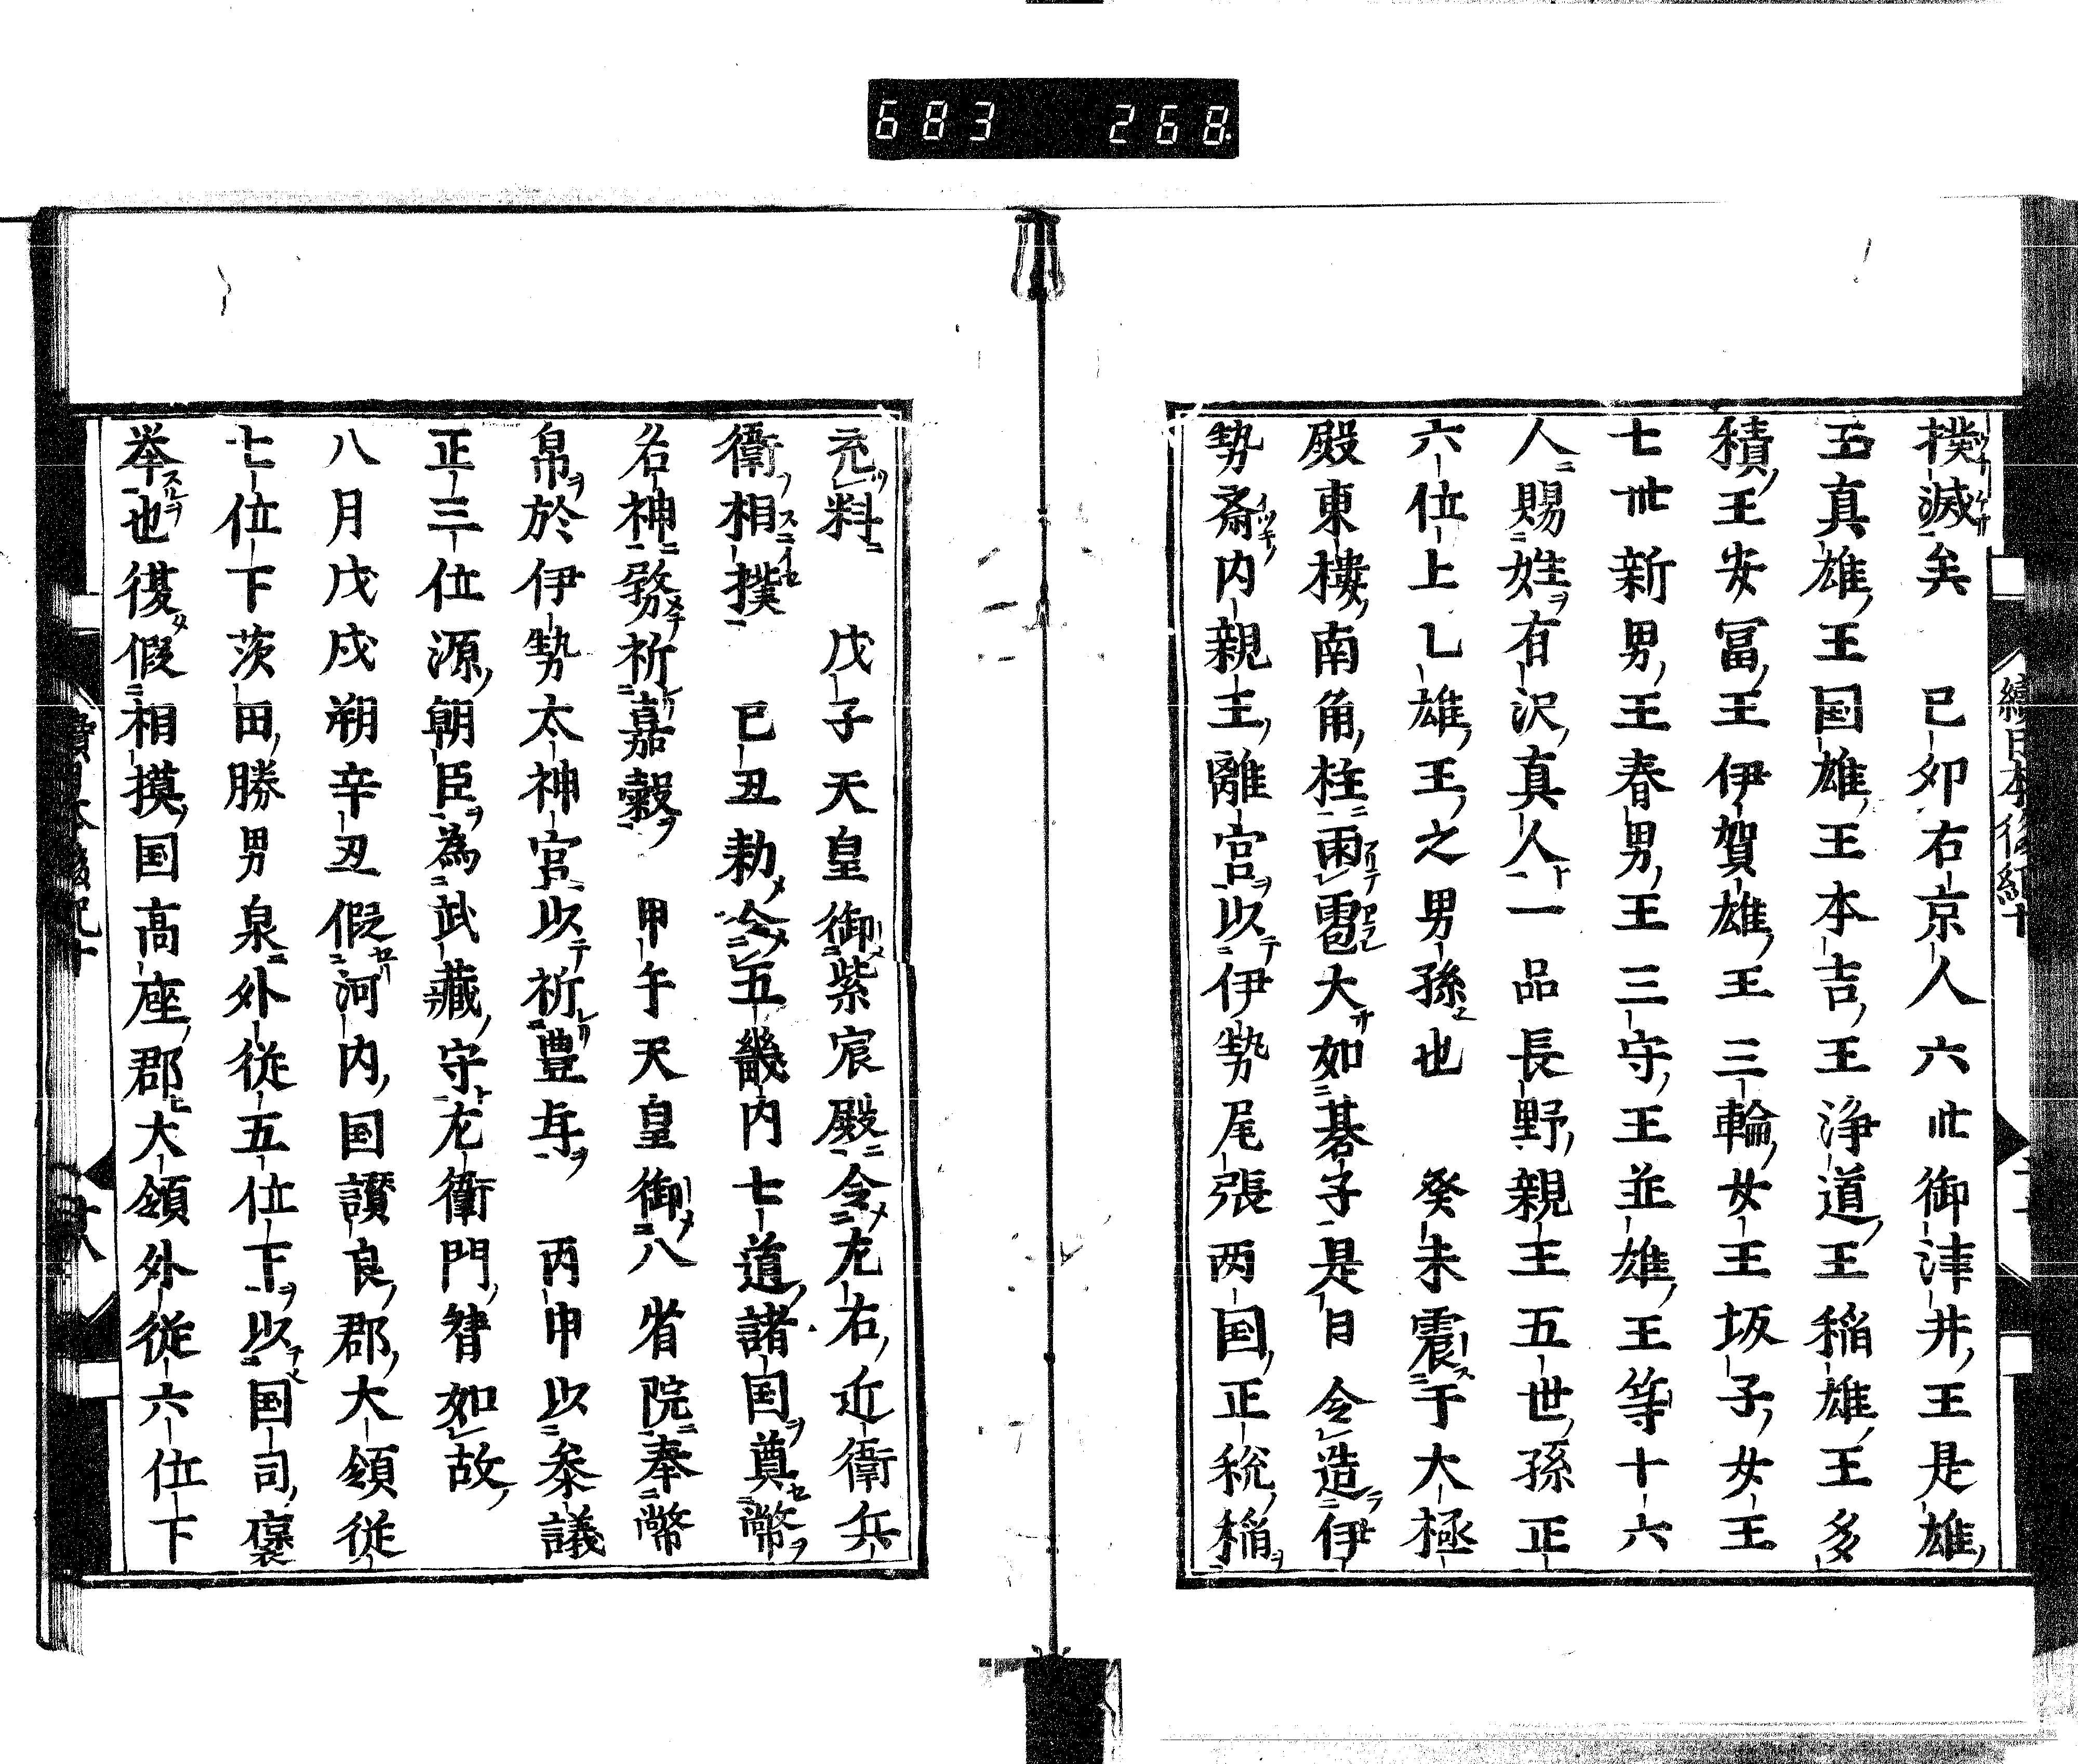 683 268
撲滅矣　已卯右京人六世御津井王是雄
王真雄王国雄王本吉王浄道王稲雄王多
積王安冨王伊賀雄王三輪女王坂子女王
七世新男王春男王三守王並雄王等十六
人賜姓有沢真人一品長野親王五世孫正
六位上乙雄王之男孫也　癸未震于大極
殿東樓南角柱雨雹大如碁子是日令造伊
勢斎内親王離宮以伊勢尾張両国正税稲
充料　戊子天皇御紫宸殿令左右近衛兵
衛相撲　已丑勅令五畿内七道諸国奠幣
名神務祈嘉穀　甲午天皇御八省院奉幣
帛於伊勢太神宮以祈豊年　丙申以参議
正三位源朝臣為武藏守左衛門督如故
八月戊戌朔辛丑假河内国讃良郡大領従
七位下茨田勝男泉外従五位下以国司褒
挙也復假相摸国高座郡大領外従六位下